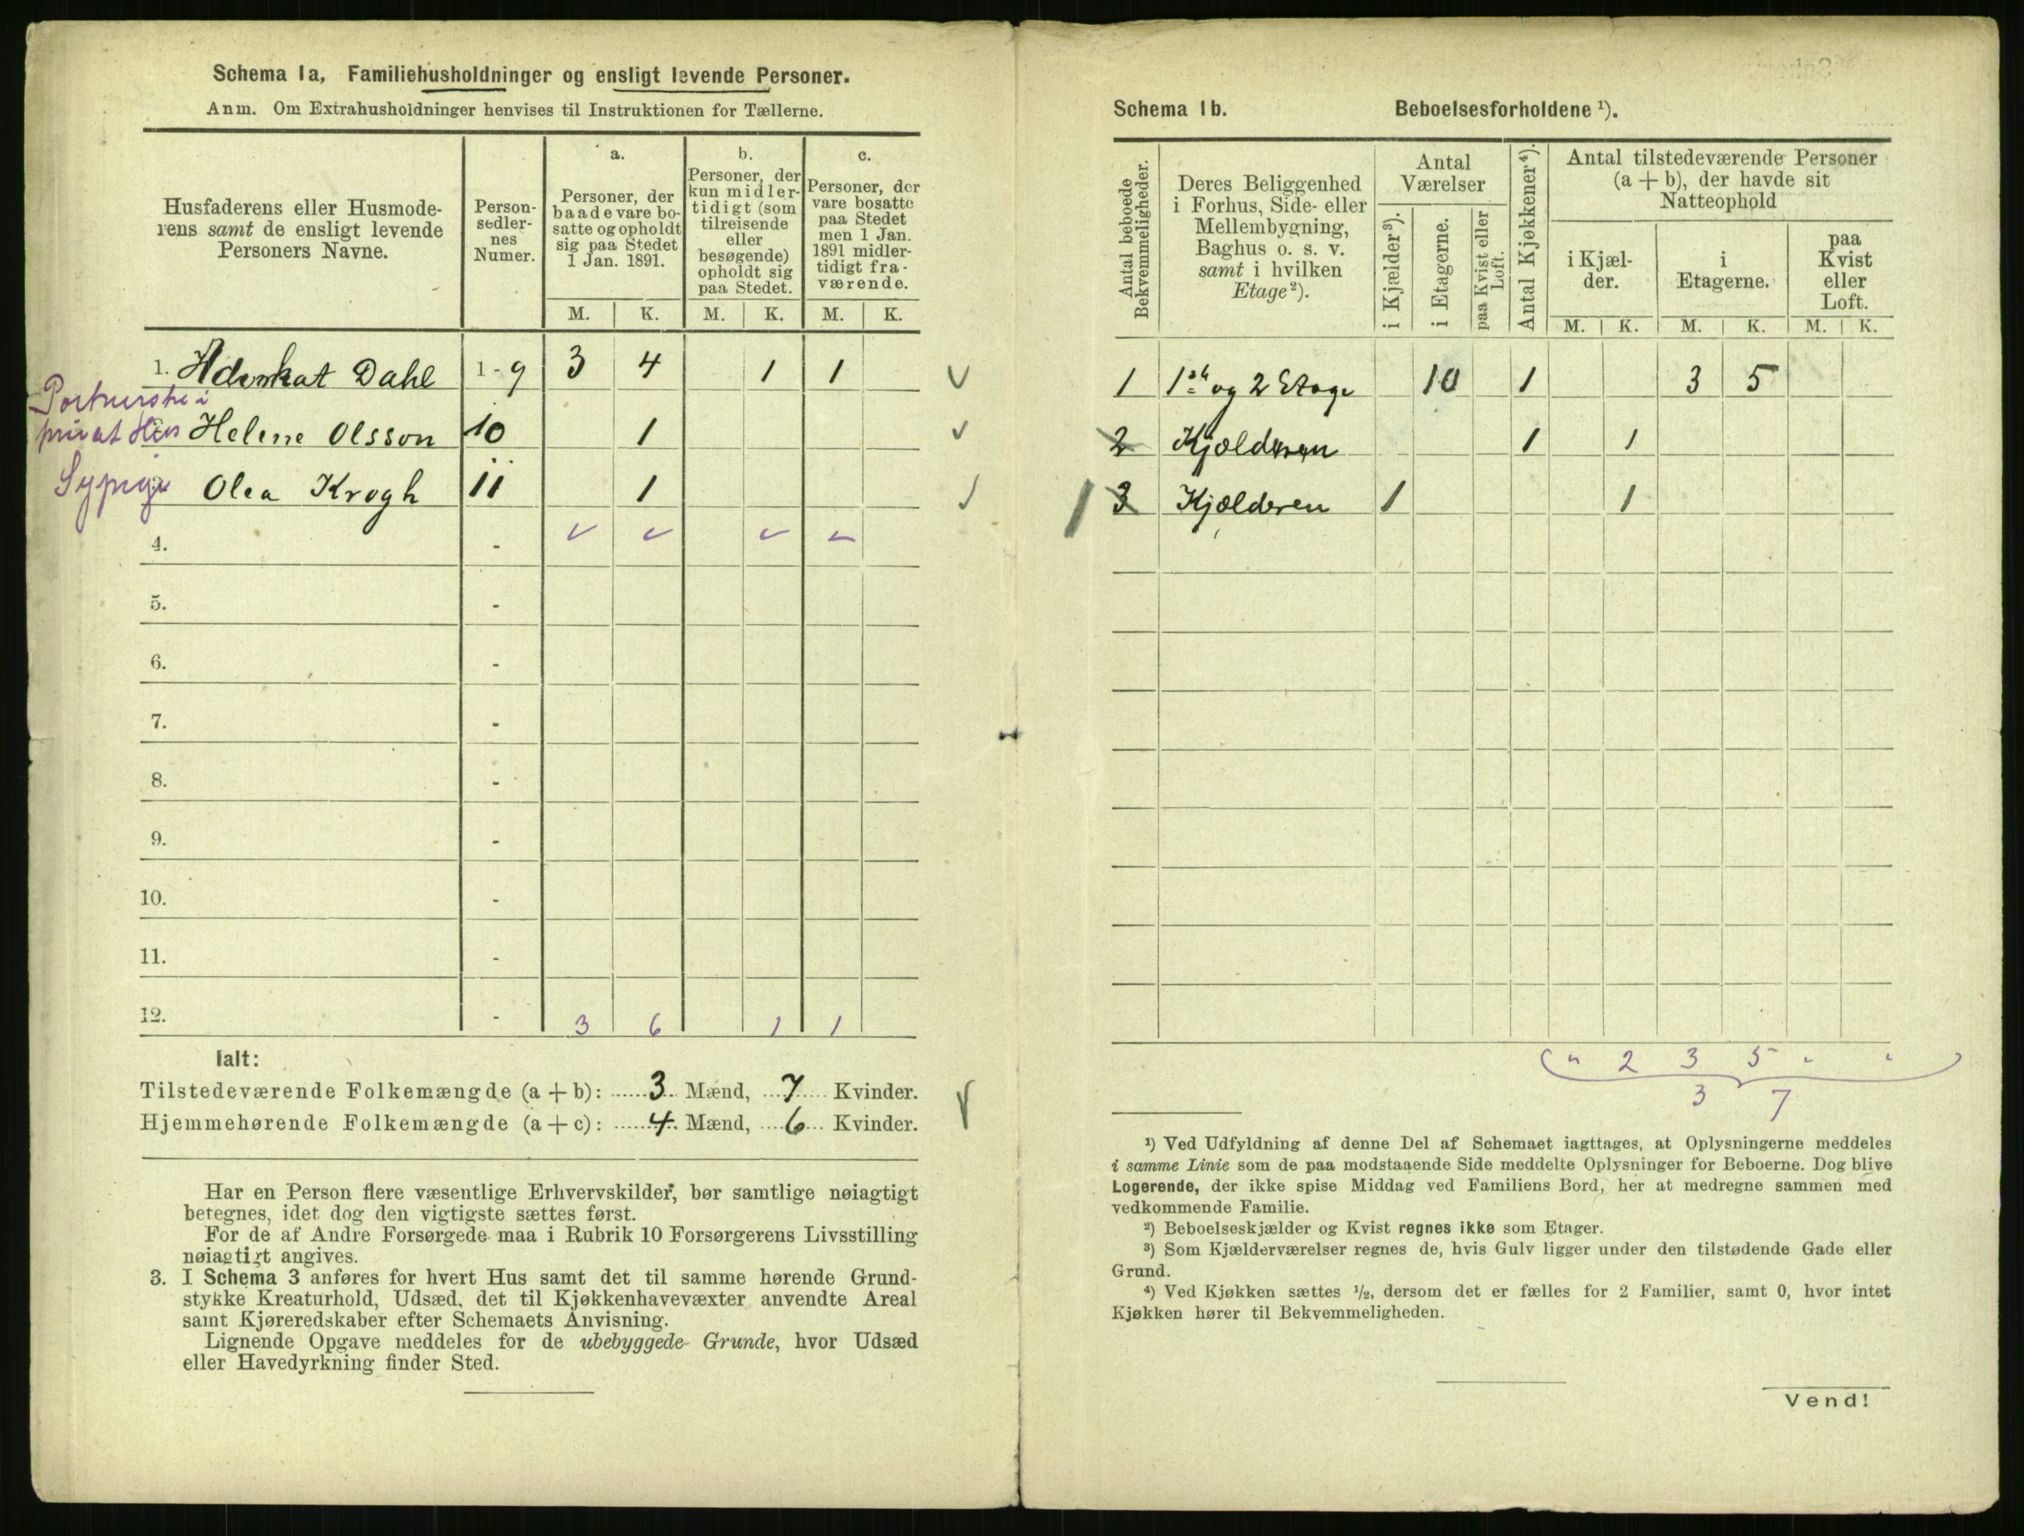 Schema 1a, Familiehusholdninger og ensligt levende Personer.
Anm. Om Extrahusholdninger henvises til Instruktionen for Tællerne.
Husfaderens eller Husmode-
rens samt de ensligt levende
Personers Navne.
Person-
sedler-
nes
Numer.
a.
Personer, der
baade vare bo-
satte og opholdt
sig paa Stedet
1 Jan. 1891.
b.
Personer, der
kun midler-
tidigt (som
tilreisende
eller
besøgende)
opholdt sig
paa Stedet.
c.
Personer, der
vare bosatte
paa Stedet
men 1 Jan.
1891 midler-
tidigt fra-
værende.
M. K. M. K. M. K.
1. Advokat Dahl 1-9 3 4 1 1
Portnerske i
privat Hus Helene Olsson 10 1
Sypige Olea Krogh 11 1
4. -
5. -
6. -
7. -
8. -
9. -
10. -
11. -
12. - 3 6 1 1
Ialt:
Tilstedeværende Folkemængde (a + b): 3 Mænd, 7 Kvinder.
Hjemmehørende Folkemængde (a + c): 4 Mænd, 6 Kvinder.
Har en Person flere væsentlige Erhvervskilder, bør samtlige nøiagtigt
betegnes, idet dog den vigtigste sættes først.
For de af Andre Forsørgede maa i Rubrik 10 Forsørgerens Livsstilling
nøiagtigt angives.
3. I Schema 3 anføres for hvert Hus samt det til samme hørende Grund-
stykke Kreaturhold, Udsæd, det til Kjøkkenhavevæxter anvendte Areal
samt Kjøreredskaber efter Schemaets Anvisning.
Lignende Opgave meddeles for de ubebyggede Grunde, hvor Udsæd
eller Havedyrkning finder Sted.
Schema 1b. Beboelsesforholdene ¹).
Antal beboede
Bekvemmeligheder.
Deres Beliggenhed
i Forhus, Side- eller
Mellembygning,
Baghus o. s. v.
samt i hvilken
Etage ²).
Antal
Værelser
i Kjælder ³).
i Etagerne.
paa Kvist eller
Loft.
Antal Kjøkkener ⁴).
Antal tilstedeværende Personer
(a + b), der havde sit
Natteophold
i Kjæl-
der.
i
Etagerne.
paa
Kvist
eller
Loft.
M. K. M. K. M. K.
1 1ste og 2 Etage 10 1 3 5
2 Kjælderen 1 1
1 3 Kjælderen 1 1
" 2 3 5 " "
3 7
¹) Ved Udfyldning af denne Del af Schemaet iagttages, at Oplysningerne meddeles
i samme Linie som de paa modstaaende Side meddelte Oplysninger for Beboerne. Dog blive
Logerende, der ikke spise Middag ved Familiens Bord, her at medregne sammen med
vedkommende Familie.
²) Beboelseskjælder og Kvist regnes ikke som Etager.
³) Som Kjælderværelser regnes de, hvis Gulv ligger under den tilstødende Gade eller
Grund.
⁴) Ved Kjøkken sættes ½, dersom det er fælles for 2 Familier, samt 0, hvor intet
Kjøkken hører til Bekvemmeligheden.
Vend!